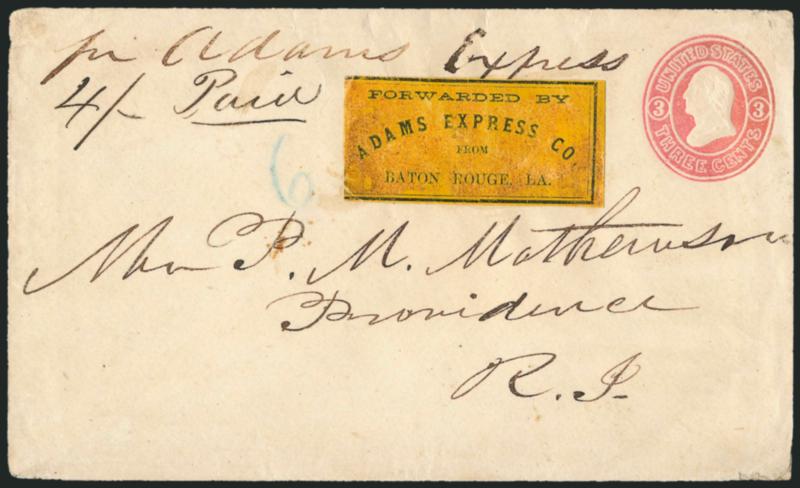 pr Adams Express
4/- Paid
FORWARDED BY
ADAMS EXPRESS CO.
FROM
BATON ROUGE, LA.
UNITED STATES
3 3
THREE CENTS
6
P. M. Mathewson
Providence
R. I.